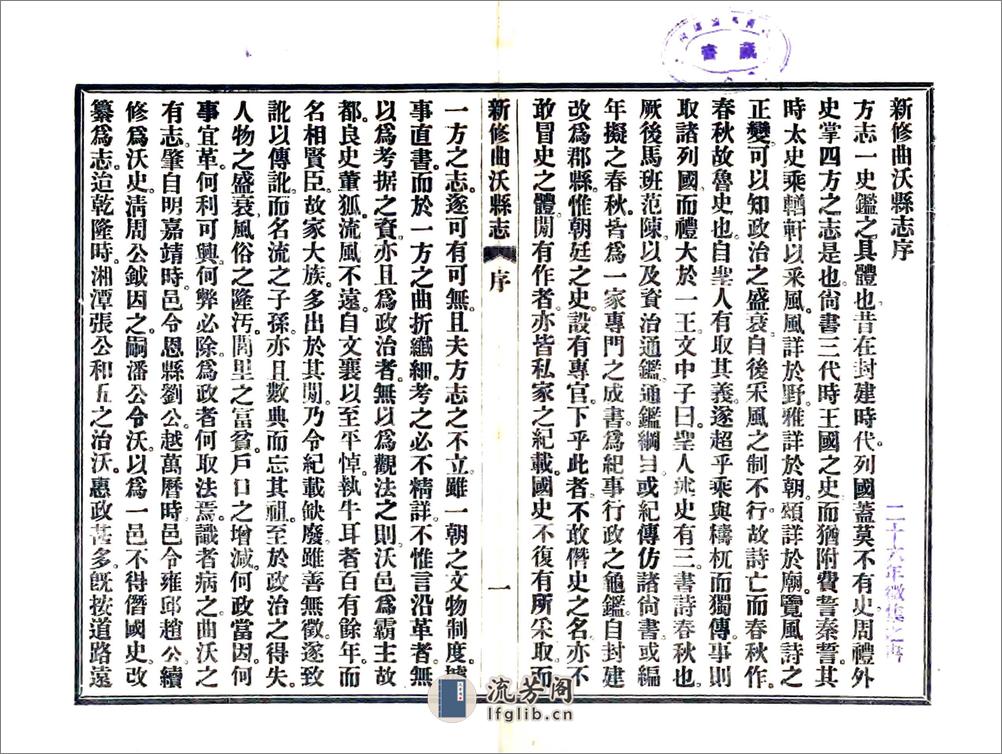 新修曲沃縣志序
方志一史鑑之具體也。昔在封建時代。列國蓋莫不有史。周禮外
史掌四方之志是也。尙書三代時王國之史。而猶附費誓秦誓。其
時太史乘輶軒以采風。風詳於野。雅詳於朝。頌詳於廟。覽風詩之
正變。可以知政治之盛衰。自後采風之制不行。故詩亡而春秋作。
春秋故魯史也。自聖人有取其義。遂超乎乘與檮杌而獨傳。事則
取諸列國。而禮大於一王。文中子曰。聖人述史有三。書詩春秋也。
厥後馬班范陳。以及資治通鑑。通鑑綱目。或紀傳仿諸尙書。或編
年擬之春秋。皆爲一家專門之成書。爲紀事行政之龜鑑。自封建
改爲郡縣。惟朝廷之史。設有專官。下乎此者。不敢僭史之名。亦不
敢冒史之體。間有作者。亦皆私家之紀載。國史不復有所采取。而
新修曲沃縣志 序 一
一方之志。遂可有可無。且夫方志之不立。雖一朝之文物制度。據
事直書。而於一方之曲折纖細。考之必不精詳。不惟言沿革者。無
以爲考据之資。亦且爲政治者。無以爲觀法之則。沃邑爲霸主故
都。良史董狐。流風不遠。自文襄以至平悼。執牛耳者百有餘年。而
名相賢臣。故家大族。多出於其間。乃令紀載缺廢。雖善無徵。遂致
訛以傳訛。而名流之子孫。亦且數典而忘其祖。至於政治之得失。
人物之盛衰。風俗之隆汚。閭里之富貧。戶口之增減。何政當因。何
事宜革。何利可興。何弊必除。爲政者何取法焉。識者病之。曲沃之
有志。肇自明嘉靖時。邑令恩縣劉公。越萬曆時。邑令雍邱趙公續
修爲沃史。淸周公鉞因之。嗣潘公令沃。以爲一邑不得僭國史。改
纂爲志。迨乾隆時。湘潭張公和五之治沃。惠政甚多。旣按道路遠
藏書
二十六年徵集之件
流芳阁
lfglib.cn